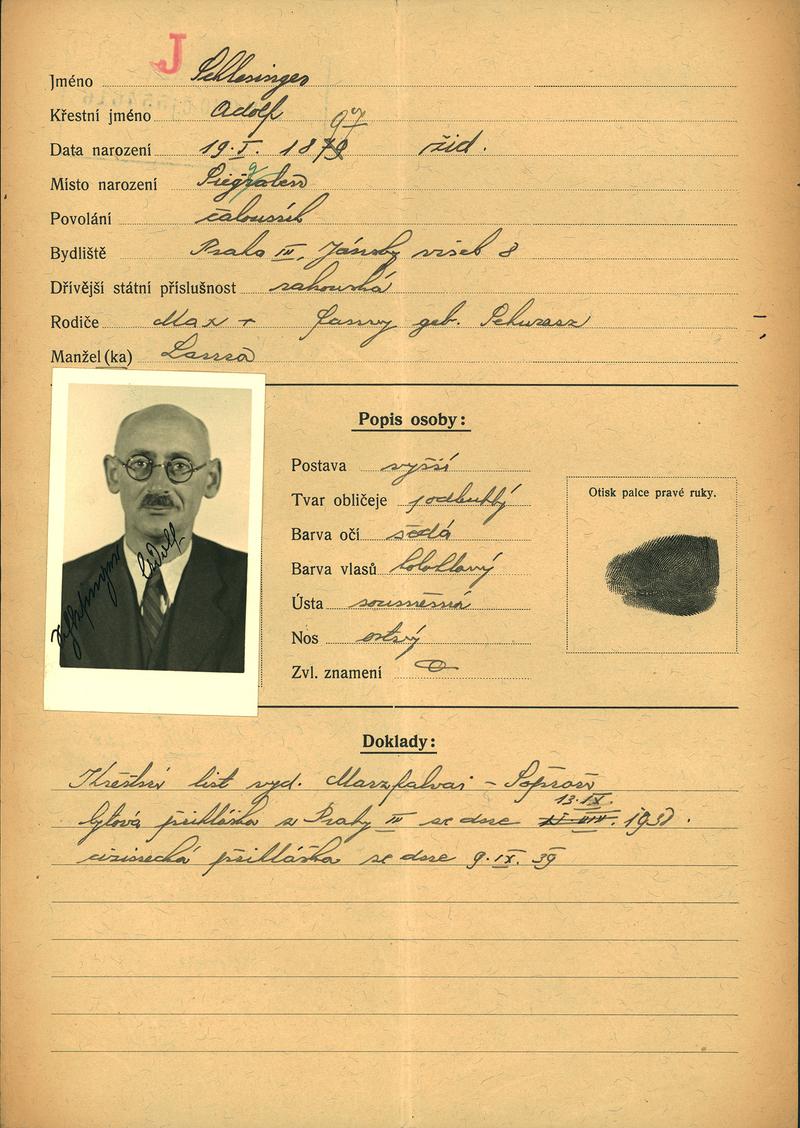 J
Jméno Schlesinger
Křestní jméno Adolf
97
Data narození 19. I. 1879 žid.
Místo narození
Povolání čalouník
Bydliště Praha III, Jánský vršek 8
Dřívější státní příslušnost rakouská
Rodiče Max + Fanny geb. Schwarz
Manžel (ka)
Popis osoby:
Postava vyšší
Tvar obličeje podlouhlý
Barva očí šedá
Barva vlasů holohlavý
Ústa souměrná
Nos ostrý
Zvl. znamení
Otisk palce pravé ruky.
Schlesinger Adolf
Doklady:
Křestní list vyd.
13. IX.
bytová přihláška z Prahy III ze dne 1938.
cizinecká přihláška ze dne 9. IX. 39